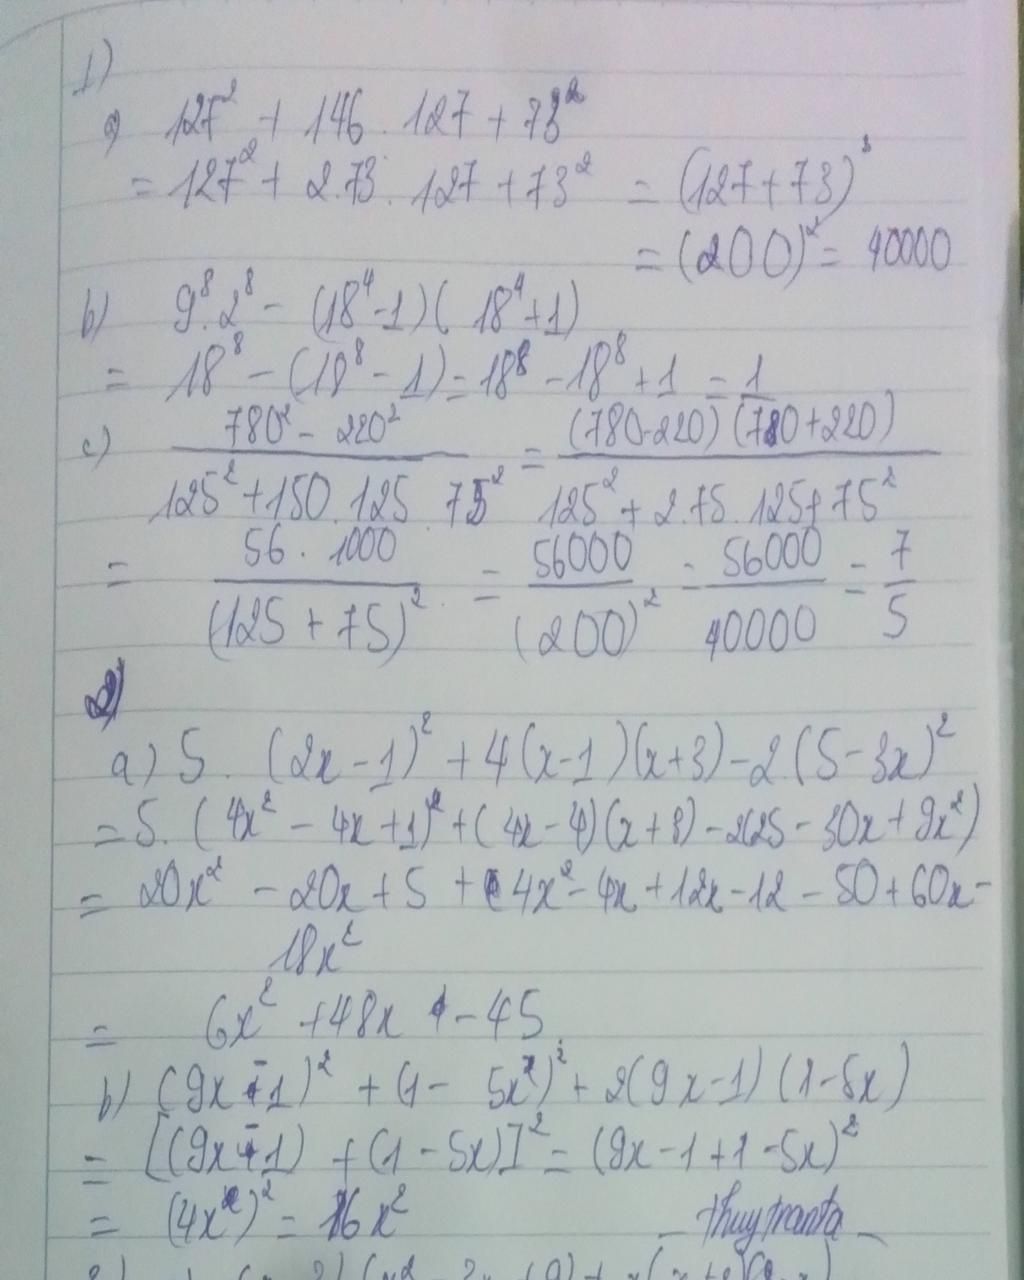 1)
a) 127² + 146 . 127 + 73²
= 127² + 2.73 . 127 + 73² = (127+73)²
= (200)² = 40000
b) 9⁸.2⁸ - (18⁴-1)(18⁴+1)
= 18⁸ - (18⁸ - 1) = 18⁸ - 18⁸ + 1 = 1
c) (780² - 220²)/(125² + 150 . 125 . 75²) = ((780-220)(780+220))/(125² + 2.75.125+75²)
= (56 . 1000)/((125 + 75)²) = 56000/(200)² = 56000/40000 = 7/5
2)
a) 5 . (2x - 1)² + 4(x-1)(x+3) - 2(5-3x)²
= 5. (4x² - 4x+1)² + (4x-4)(x+3) - 2(25 - 30x + 9x²)
= 20x² - 20x + 5 + 4x² - 4x + 12x - 12 - 50 + 60x -
18x²
= 6x² + 48x - 45
b) (9x-1)² + (1 - 5x)² + 2(9x-1)(1-5x)
= [(9x-1) + (1-5x)]² = (9x-1+1-5x)²
= (4x)² = 16x²
thuytranta